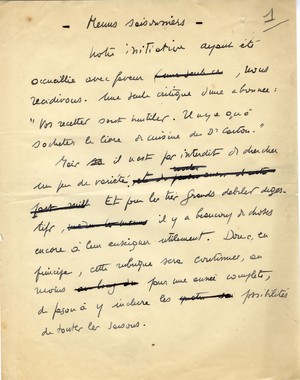 1
- Menus saisonniers -
Notre initiative ayant été
accueillie avec faveur, nous
récidivons. Une seule critique d'une abonnée :
"Vos recettes sont inutiles. Il n'y a qu'à
s'acheter le livre de cuisine du Dr Carton."
Mais il n'est pas interdit de chercher
un peu de variété
Et pour les très grands débiles diges-
tifs, il y a beaucoup de choses
encore à leur enseigner utilement. Donc, en
principe, cette rubrique sera continuée, au
moins pour une année complète,
de façon à y inclure les possibilités
de toutes les saisons.